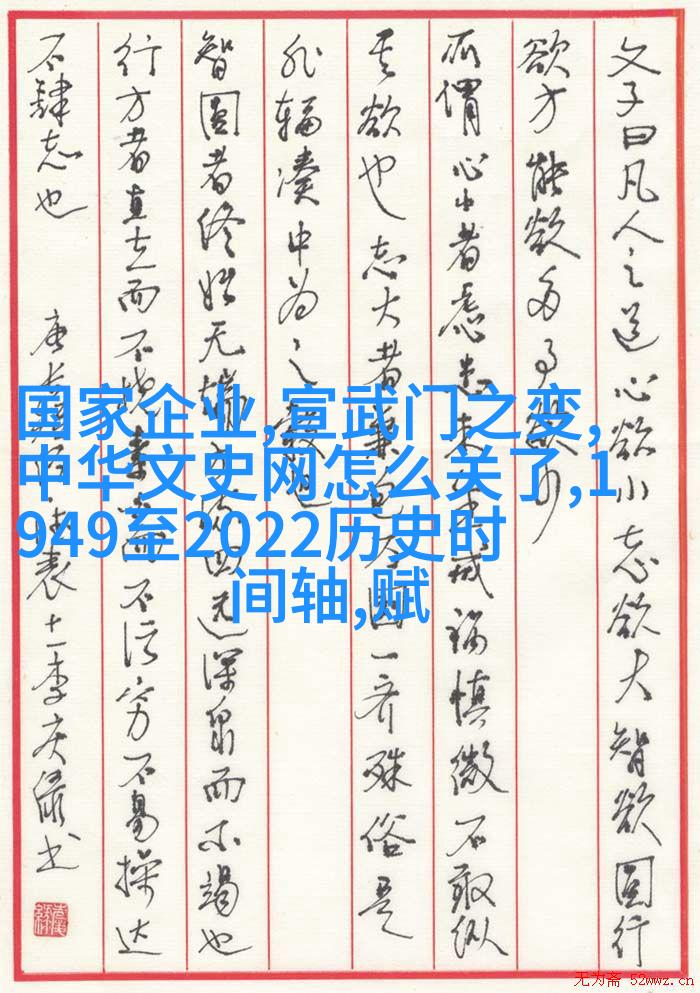 文子曰凡人之道心欲小志欲大智欲圆行
欲方能欲多事欲少
所谓心小者虑患未生戒祸慎微不敢纵
其欲也志大者兼包万国一齐殊俗是
非辐凑中为之毂也
智圆者终始无端方流四远深泉而不竭也
行方者直立而不挠素白而不污穷不易操达
不肆志也
国家企业,宣武门之变,
中华文史网怎么关了,1
949至2022历史时
间轴,赋
无为斋 52wwz.cn